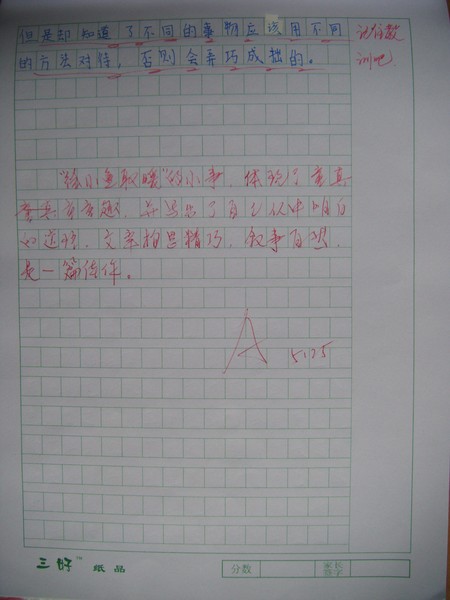 但是却知道了不同的事物应该用不同
的方法对待，否则会弄巧成拙的。
记住教
训吧
"给小鱼取暖"的小事，体现了童真
童趣，并写出了自己从中明白
的道理，文章构思精巧，叙事自然，
是一篇佳作。
A 5.25
三好™ 纸品
分数
家长
签字